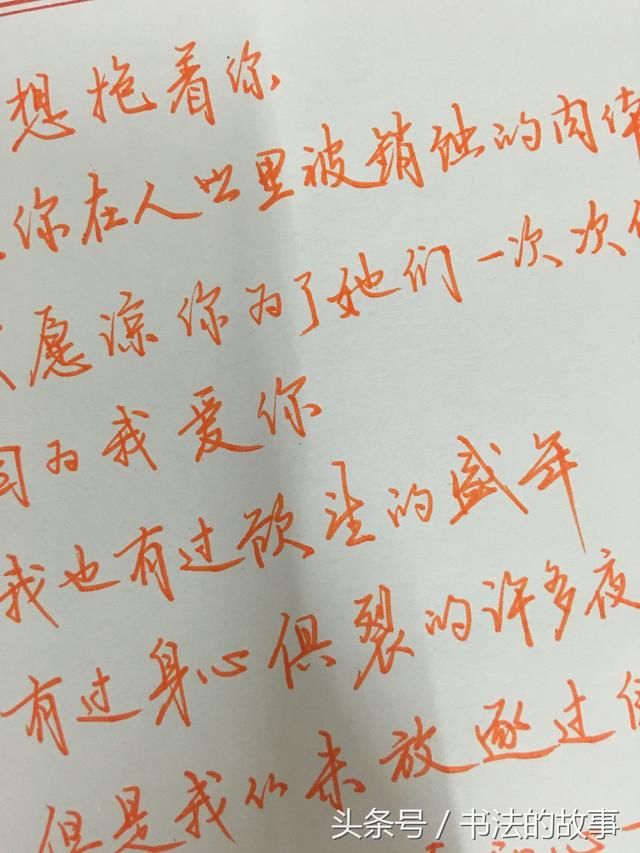 想抱着你
你在人世里被销蚀的肉
愿凉你为了她们一次次
因为我爱你
我也有过欲望的盛年
有过身心俱裂的许多夜
但是我从未放逐过
头条号 / 书法的故事